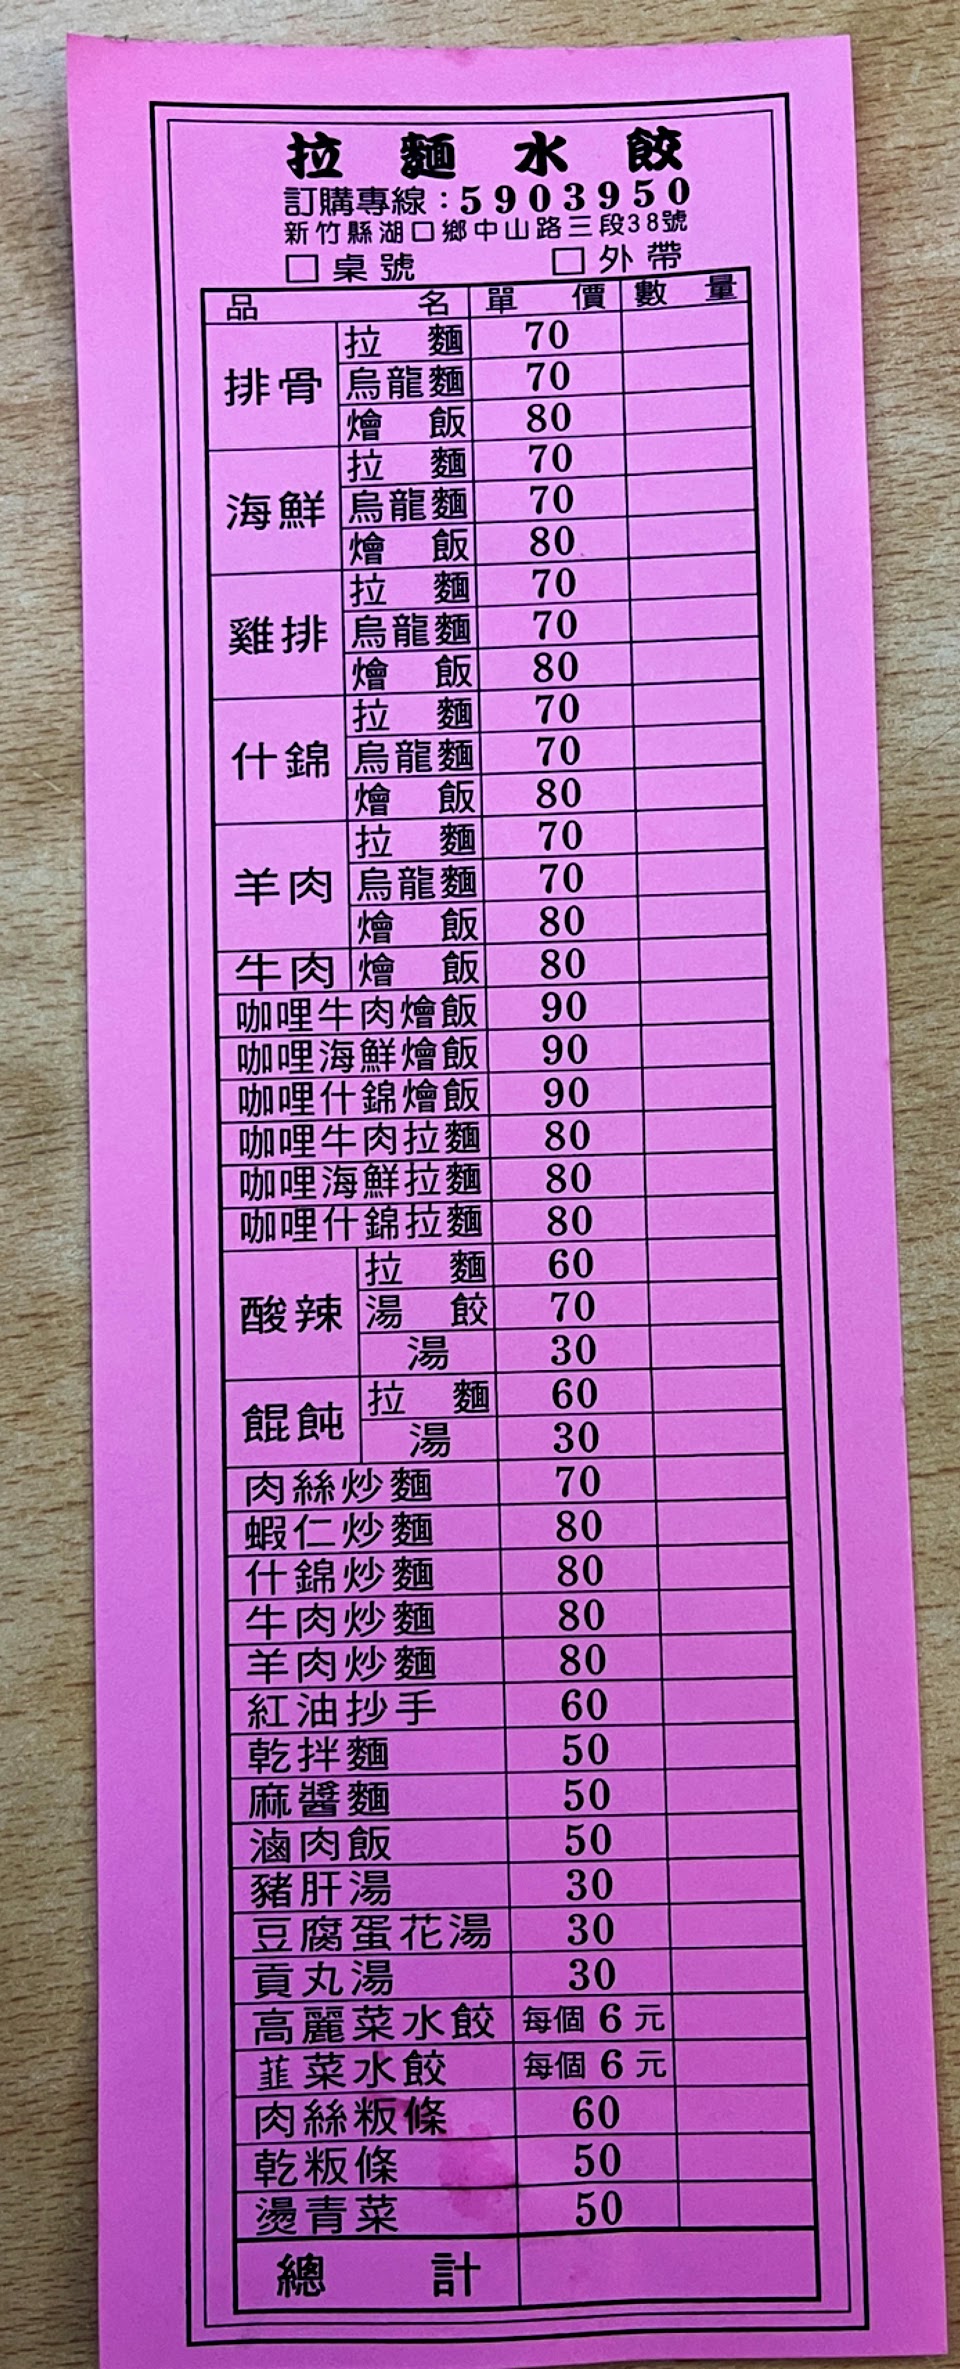 拉麵水餃
訂購專線：5903950
新竹縣湖口鄉中山路三段38號
□ 桌號 □ 外帶
品名 單價 數量
排骨 拉麵 70
烏龍麵 70
燴飯 80
海鮮 拉麵 70
烏龍麵 70
燴飯 80
雞排 拉麵 70
烏龍麵 70
燴飯 80
什錦 拉麵 70
烏龍麵 70
燴飯 80
羊肉 拉麵 70
烏龍麵 70
燴飯 80
牛肉 燴飯 80
咖哩牛肉燴飯 90
咖哩海鮮燴飯 90
咖哩什錦燴飯 90
咖哩牛肉拉麵 80
咖哩海鮮拉麵 80
咖哩什錦拉麵 80
酸辣 拉麵 60
湯餃 70
湯 30
餛飩 拉麵 60
湯 30
肉絲炒麵 70
蝦仁炒麵 80
什錦炒麵 80
牛肉炒麵 80
羊肉炒麵 80
紅油抄手 60
乾拌麵 50
麻醬麵 50
滷肉飯 50
豬肝湯 30
豆腐蛋花湯 30
貢丸湯 30
高麗菜水餃 每個6元
韮菜水餃 每個6元
肉絲粄條 60
乾粄條 50
燙青菜 50
總計